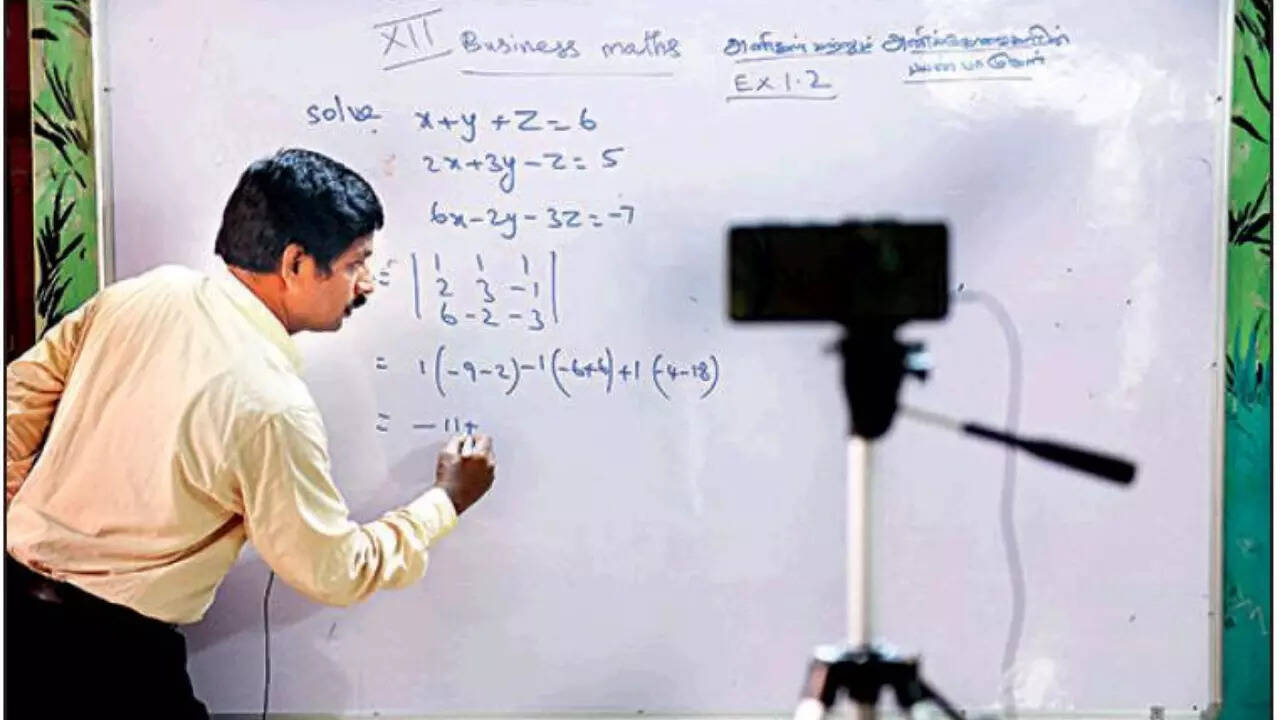 XII Business maths அணிகள் மற்றும் அணிக்கோவைகளின்
பயன்பாடுகள்
EX 1.2
solve x+y+z=6
2x+3y-z=5
6x-2y-3z=-7
= | 1 1 1 |
| 2 3 -1 |
| 6 -2 -3 |
= 1(-9-2)-1(-6+6)+1(-4-18)
= -11+